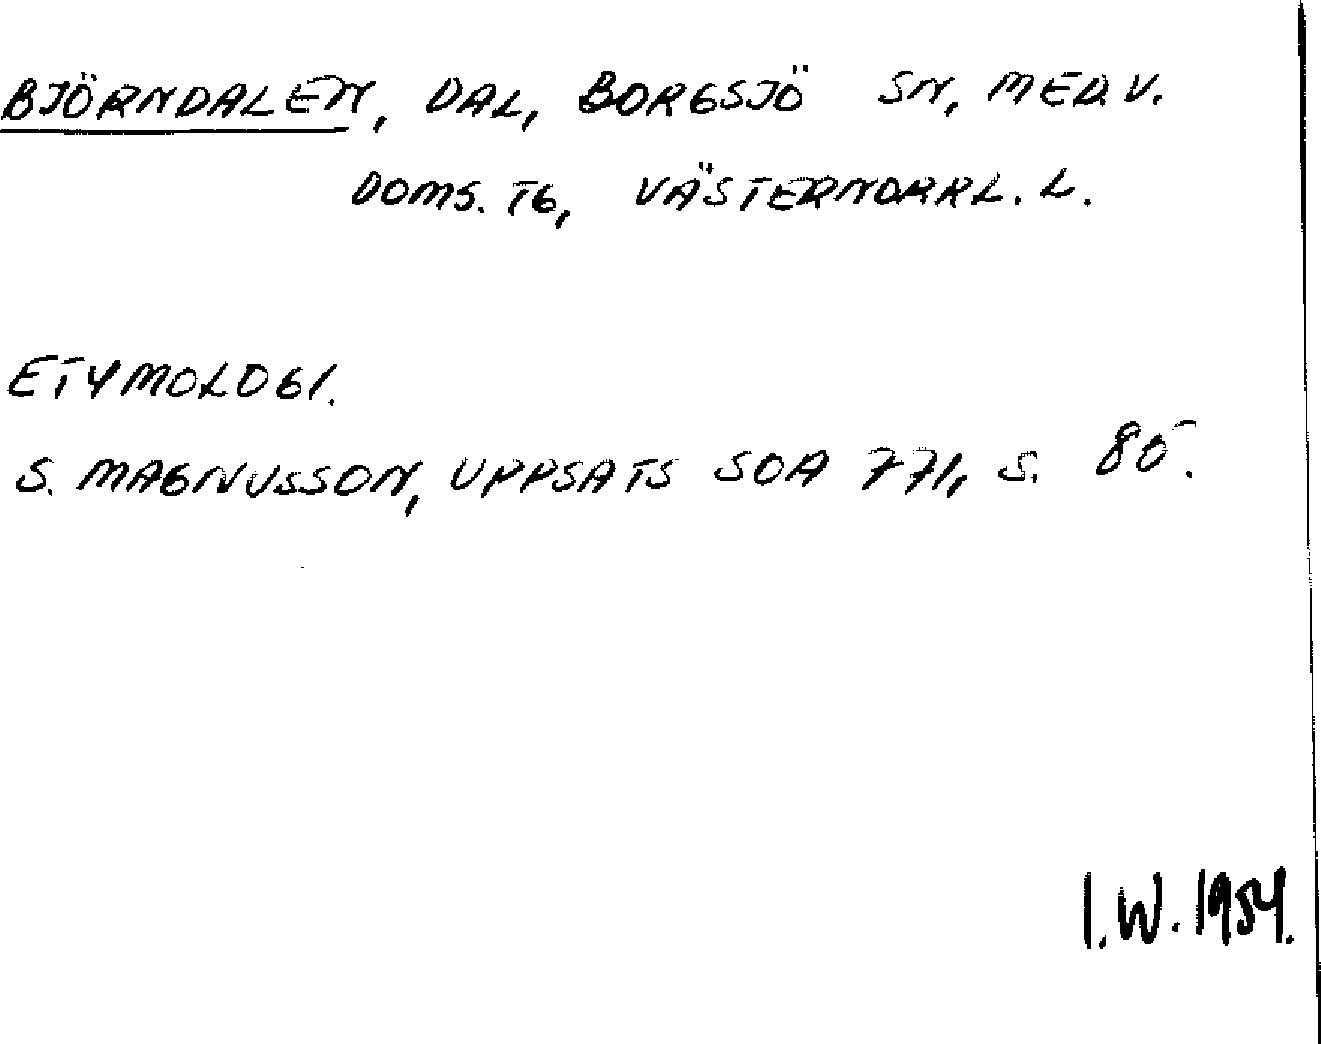 BJÖRNDALEN, DAL, BORGSJÖ SN, MED. V.
DOMS. TG, VÄSTERNORRL. L.
ETYMOLOGI.
S. MAGNUSSON, UPPSATS SOA 771, S. 85.
I.W. 1954.